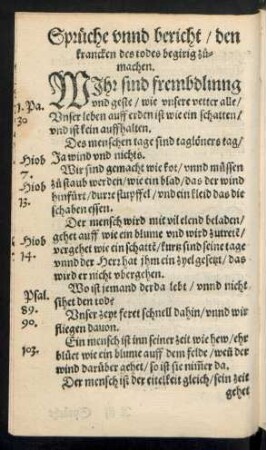 Sprüche vnnd bericht / den
krancken des todes begirig zů-
machen.
WIhr sind frembdlinng
1. Pa. vnd geste / wie vnsere vetter alle /
30 Vnser leben auff erden ist wie ein schatten /
vnd ist kein auffhalten.
Des menschen tage sind taglöners tag /
Hiob Ja wind vnd nichts.
7. Wir sind gemacht wie kot / vnnd müssen
Hiob zů staub werden / wie ein blad / das der wind
13. hinfürt / durre stuppfel / vnd ein kleid das die
schaben essen.
Der mensch wird mit vil elend beladen /
Hiob gehet auff wie ein blume vnd wird zutreit /
14. vergehet wie ein schatt / kurtz sind seine tage
vnnd der Herr hat jhm ein zyel gesetzt / das
wird er nicht vbergehen.
Psal. Wo ist jemand der da lebt / vnnd nicht
89. sihet den tod?
90. Vnser zeyt feret schnell dahin / vnnd wir
fliegen dauon.
103. Ein mensch ist inn seiner zeit wie hew / ehr
blüet wie ein blume auff dem felde / weñ der
wind darüber gehet / so ist sie nim̃er da.
Der mensch ist der eitelkeit gleich / sein zeit
gehet